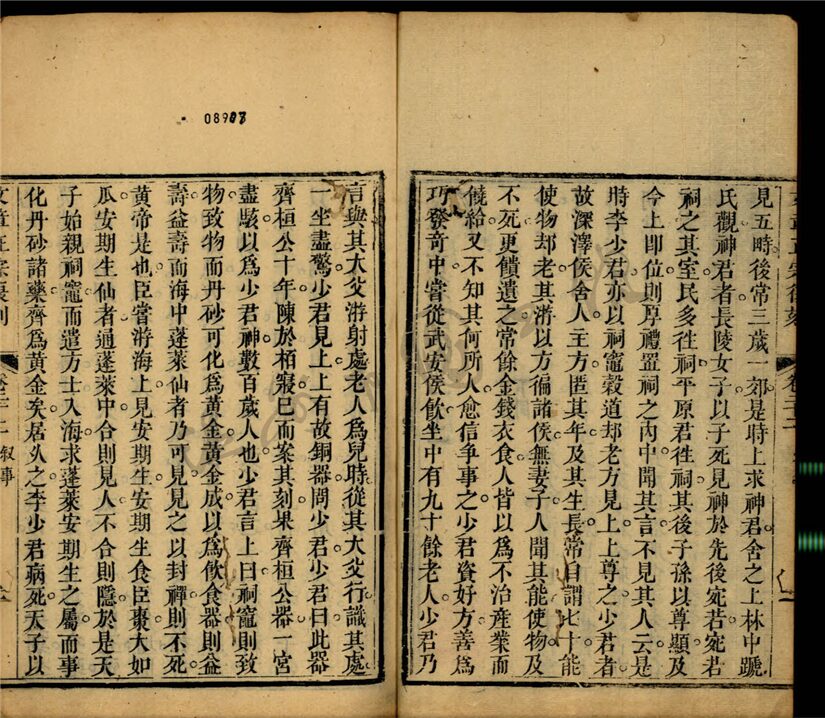 見五時後常三歲一郊是時上求神君舍之上林中蹏
氏觀神君者長陵女子以子死見神於先後宛若宛若
祠之其室民多徃祠平原君徃祠其後子孫以尊顯及
今上卽位則厚禮置祠之內中聞其言不見其人云是
時李少君亦以祠竈穀道却老方見上上尊之少君者
故深澤侯舍人主方匿其年及其生長常自謂七十能
使物却老其游以方徧諸侯無妻子人聞其能使物及
不死更饋遺之常餘金錢衣食人皆以爲不治產業而
饒給又不知其何所人愈信爭事之少君資好方善爲
巧發奇中嘗從武安侯飮坐中有九十餘老人少君乃
言與其大父游射處老人爲兒時從其大父行識其處
一坐盡驚少君見上上有故銅器問少君少君曰此器
齊桓公十年陳於栢寢已而案其刻果齊桓公器一宮
盡駭以爲少君神數百歲人也少君言上曰祠竈則致
物致物而丹砂可化爲黃金黃金成以爲飮食器則益
壽益壽而海中蓬萊仙者乃可見見之以封禪則不死
黃帝是也臣嘗游海上見安期生安期生食臣棗大如
瓜安期生仙者通蓬萊中合則見人不合則隱於是天
子始親祠竈而遣方士入海求蓬萊安期生之屬而事
化丹砂諸藥齊爲黃金矣居久之李少君病死天子以
卷二十二 叙事